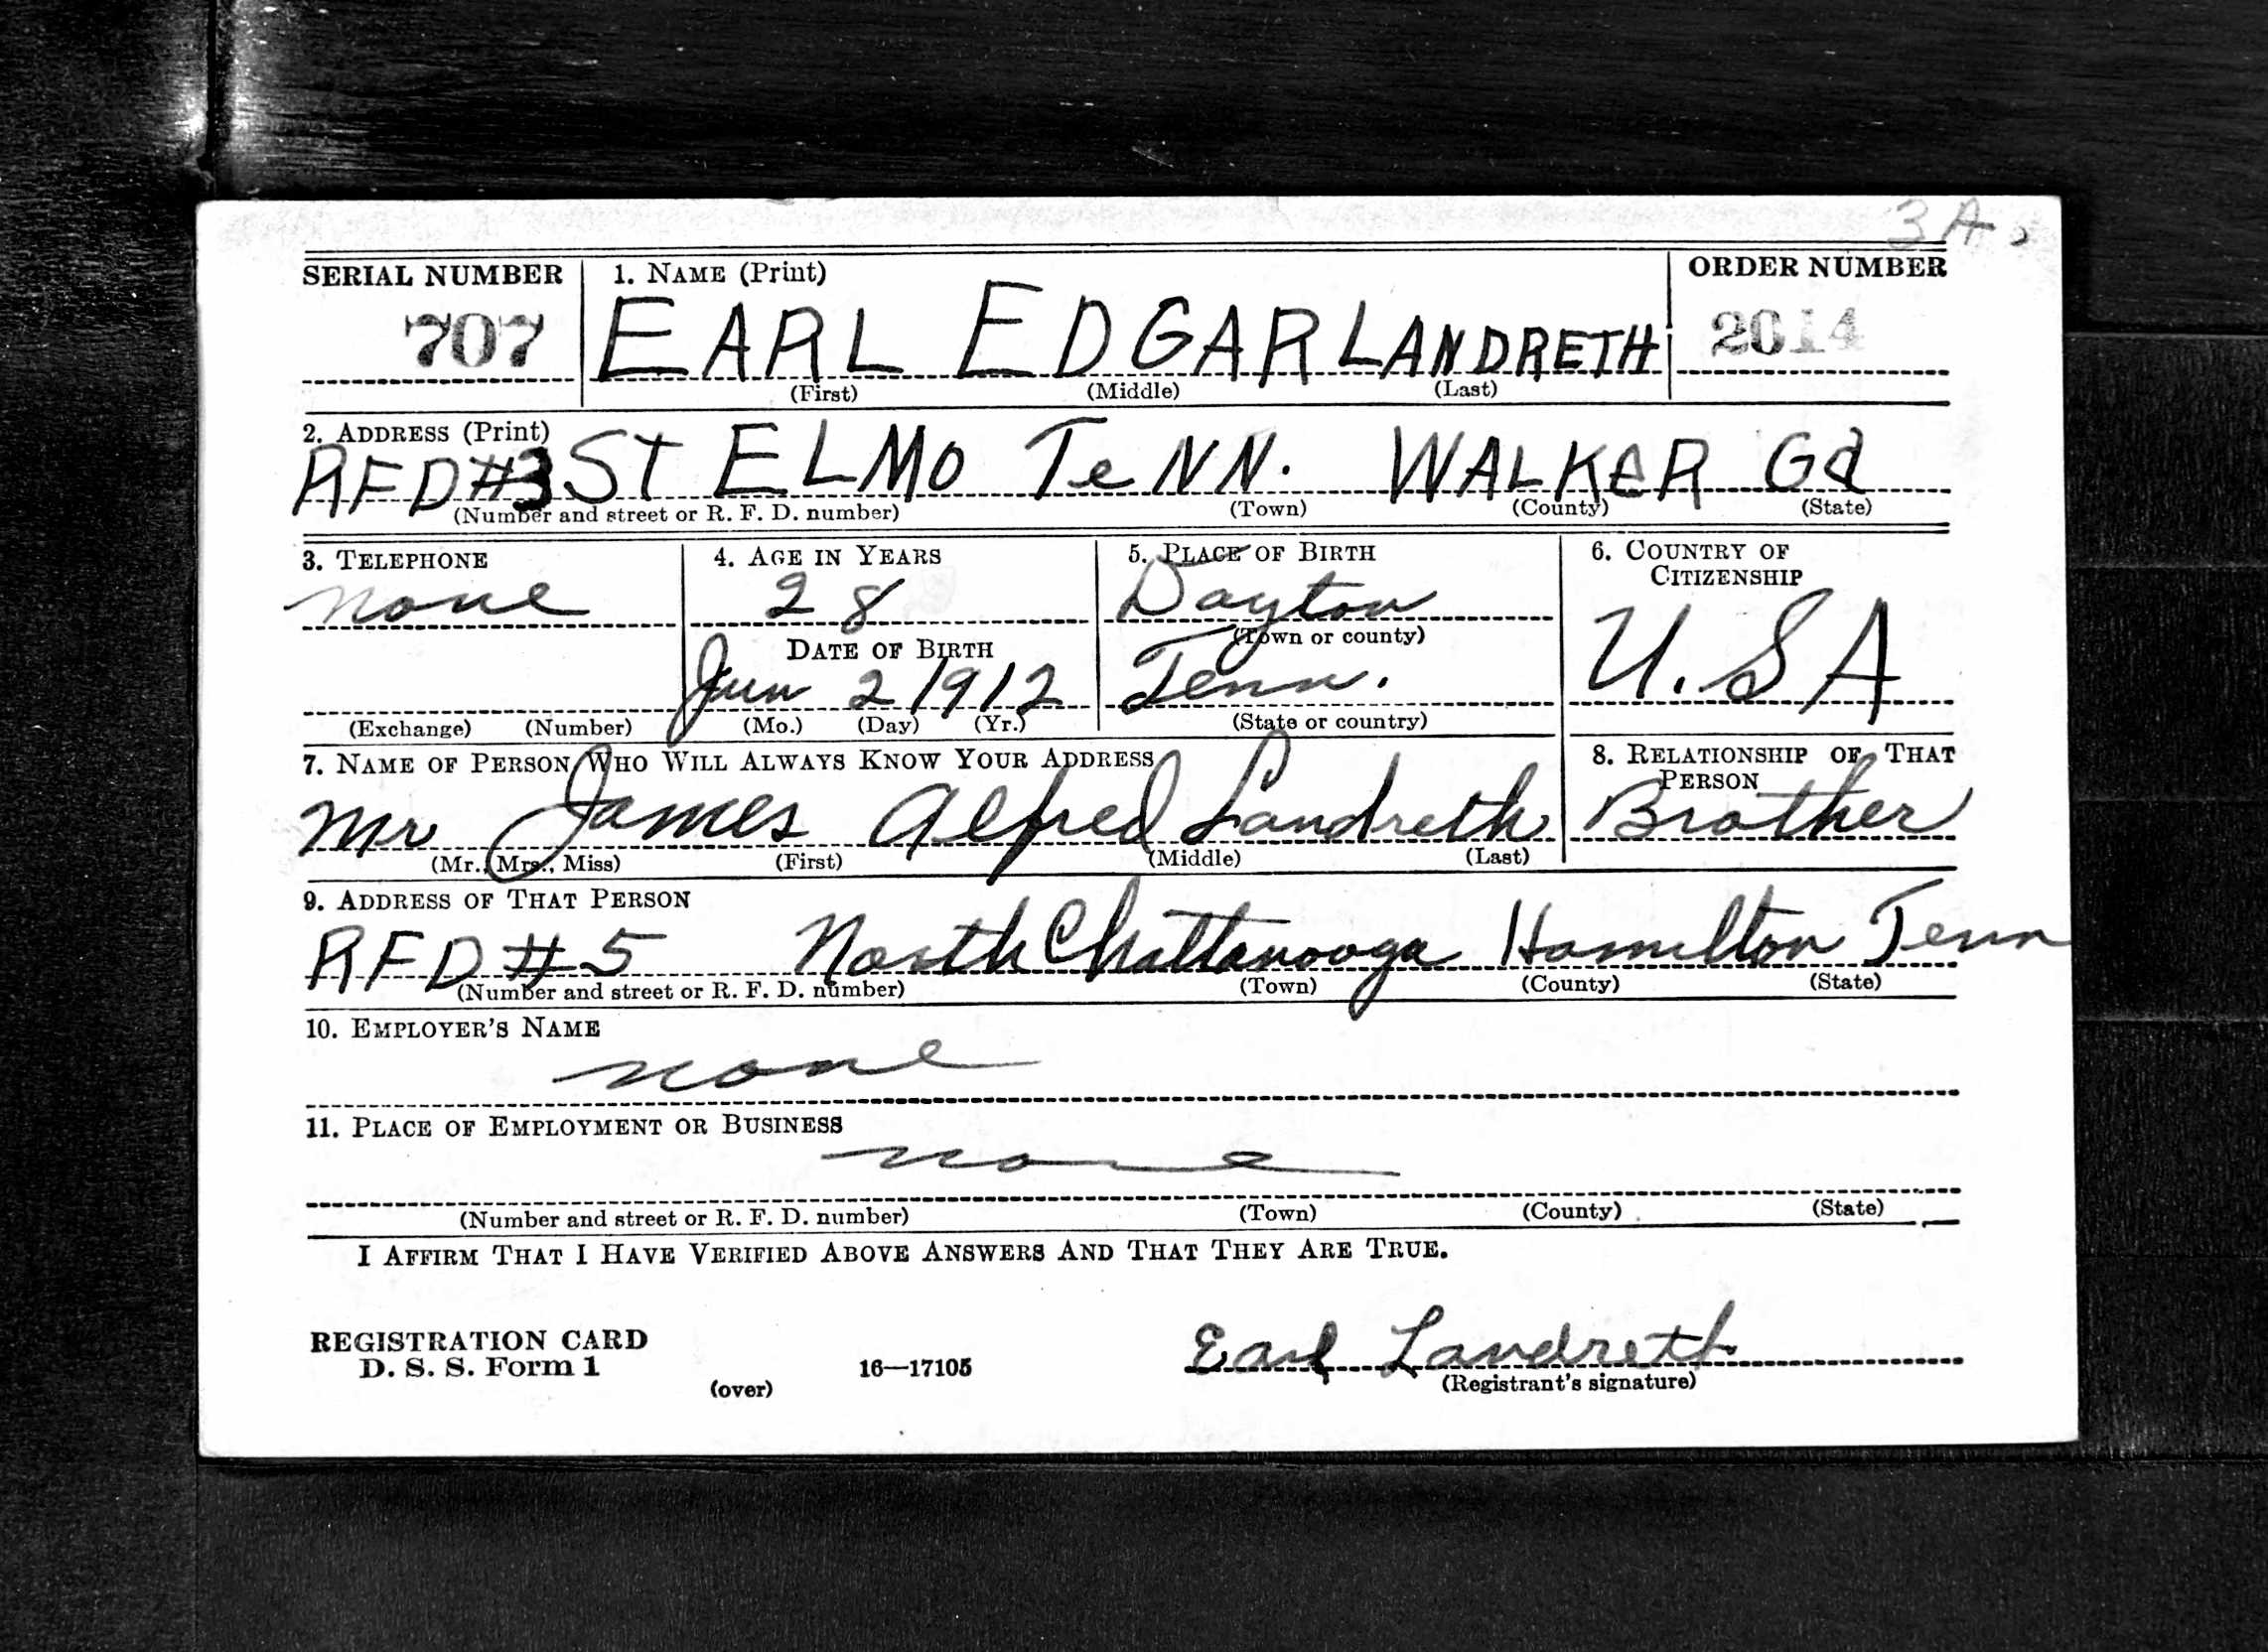 3A
SERIAL NUMBER 1. NAME (Print) ORDER NUMBER
707 EARL EDGAR LANDRETH 2014
(First) (Middle) (Last)
2. ADDRESS (Print)
RFD #3 ST ELMO TeNN. WALKER Ga
(Number and street or R. F. D. number) (Town) (County) (State)
3. TELEPHONE 4. AGE IN YEARS 5. PLACE OF BIRTH 6. COUNTRY OF
CITIZENSHIP
none 28 Dayton U.SA
DATE OF BIRTH (Town or county)
Jun 2 1912 Tenn.
(Exchange) (Number) (Mo.) (Day) (Yr.) (State or country)
7. NAME OF PERSON WHO WILL ALWAYS KNOW YOUR ADDRESS 8. RELATIONSHIP OF THAT
PERSON
Mr James Alfred Landreth Brother
(Mr., Mrs., Miss) (First) (Middle) (Last)
9. ADDRESS OF THAT PERSON
RFD #5 North Chattanooga Hamilton Tenn
(Number and street or R. F. D. number) (Town) (County) (State)
10. EMPLOYER'S NAME
none
11. PLACE OF EMPLOYMENT OR BUSINESS
none
(Number and street or R. F. D. number) (Town) (County) (State)
I AFFIRM THAT I HAVE VERIFIED ABOVE ANSWERS AND THAT THEY ARE TRUE.
REGISTRATION CARD
D. S. S. Form 1 16—17105 Earl Landreth
(over) (Registrant's signature)